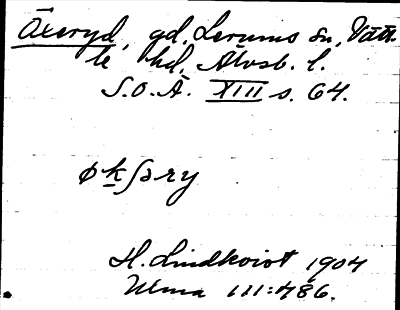 Öxeryd, gd, Lerums sn, Vätt-
le hd, Älvsb. l.
S.O.Ä. XIII s. 64.
øksəry
H. Lindkvist 1904
Ulma 111:486.